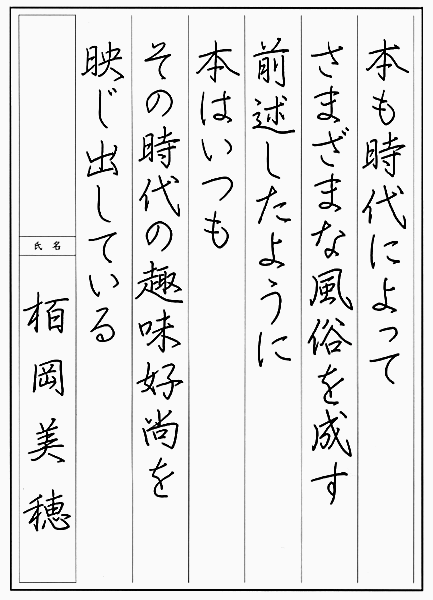 本も時代によって
さまざまな風俗を成す
前述したように
本はいつも
その時代の趣味好尚を
映じ出している
氏名
栢岡美穂